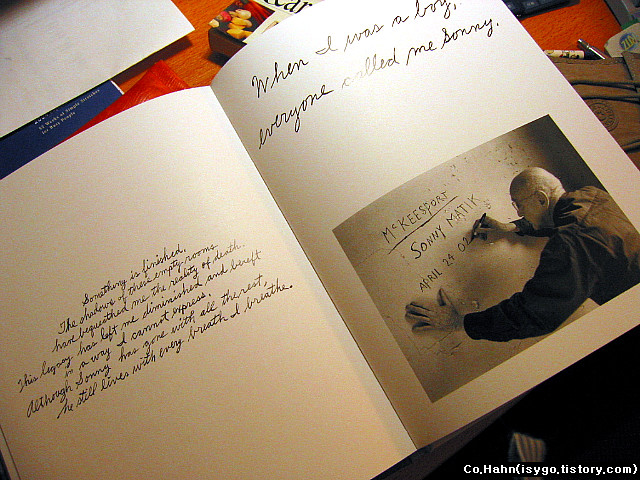 52 Weeks of Simple Stretches
for Busy People
car
When I was a boy,
everyone called me Sonny.
McKEESPORT
SONNY MATIK
APRIL 24 02
Something is finished.
The shadows of these empty rooms
have bequeathed me the reality of death.
This legacy has left me diminished and bereft
in a way I cannot express.
Although Sonny has gone with all the rest,
he still lives with every breath I breathe.
Co.Hahn(isygo.tistory.com)